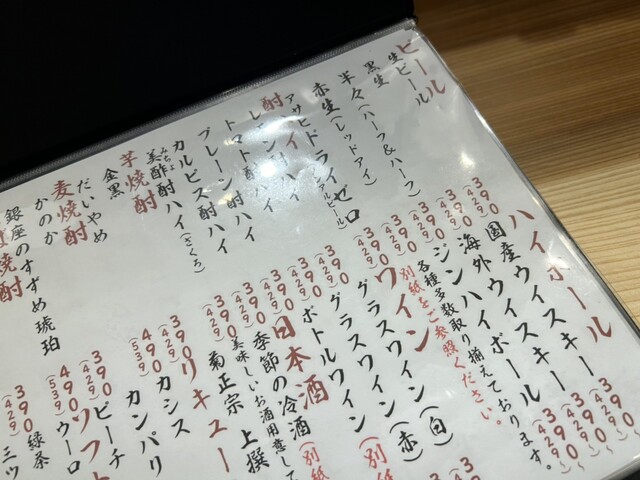 ビール
生ビール
黒生
半々(ハーフ&ハーフ)
赤生(レッドアイ)
アサヒドライゼロ
酎ハイ
レモン酎ハイ
トマト酎ハイ
プレーン酎ハイ
カルピス酎ハイ
美酢酎ハイ(ざくろ)
みちょ
芋焼酎
金黒
だいやめ
麦焼酎
かのか
銀座のすずめ琥珀
焼酎
390
(429)
390
(429)
390
(429)
390
(429)
390
(429)
390
(429)
390
(429)
390
(429)
390
(429)
390
(429)
490
(539)
390
(429)
490
(539)
390
(429)
ハイボール
国産ウイスキー
390
(429)~
海外ウイスキー
390
(429)~
ジンハイボール
390
(429)~
各種多数取り揃えております。
別紙をご参照ください。
ワイン
グラスワイン(白)
グラスワイン(赤)
ボトルワイン(別紙
日本酒(別紙
季節の冷酒
美味しいお酒用意して
菊正宗 上撰
リキュー
カシス
カンパリ
ピーチ
ウーロ
ソフト
緑茶
三ツ